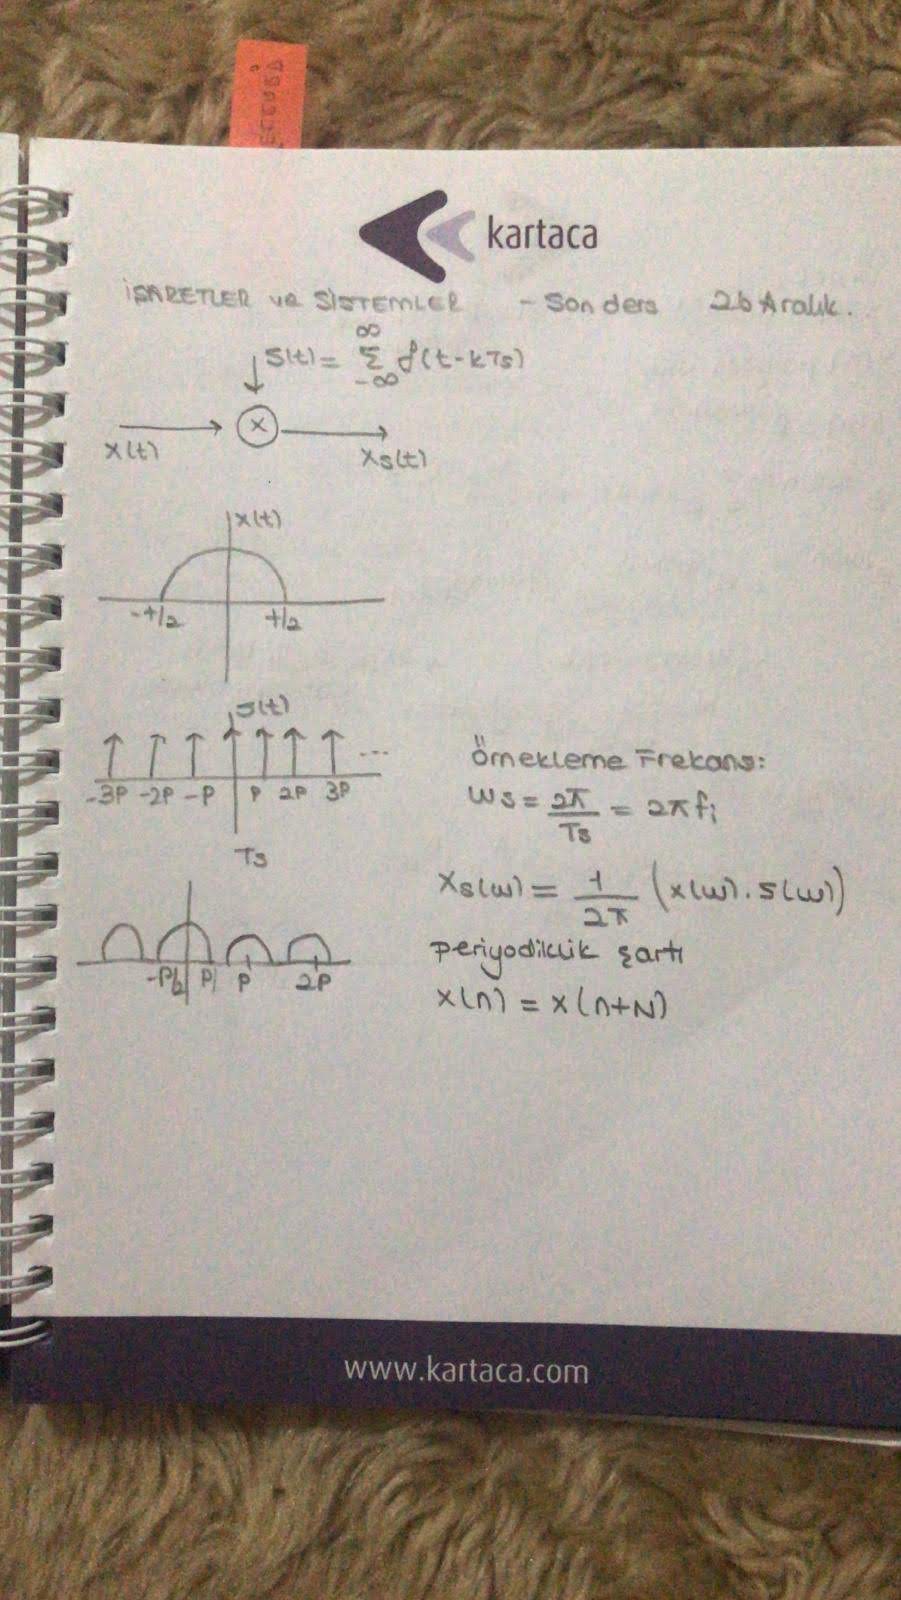 kartaca
İŞARETLER ve SİSTEMLER - Son ders 26 Aralık.
S(t) = ∞ Σ -∞ δ(t-kTs)
x
x(t) xs(t)
x(t)
-t/2 t/2
S(t)
-3P -2P -P P 2P 3P ...
Ts
-P/2 P/ P 2P
Örnekleme Frekansı:
ws = 2π/Ts = 2πfi
Xs(w) = 1/2π (x(w) . S(w))
periyodiklik şartı
x(n) = x(n+N)
www.kartaca.com